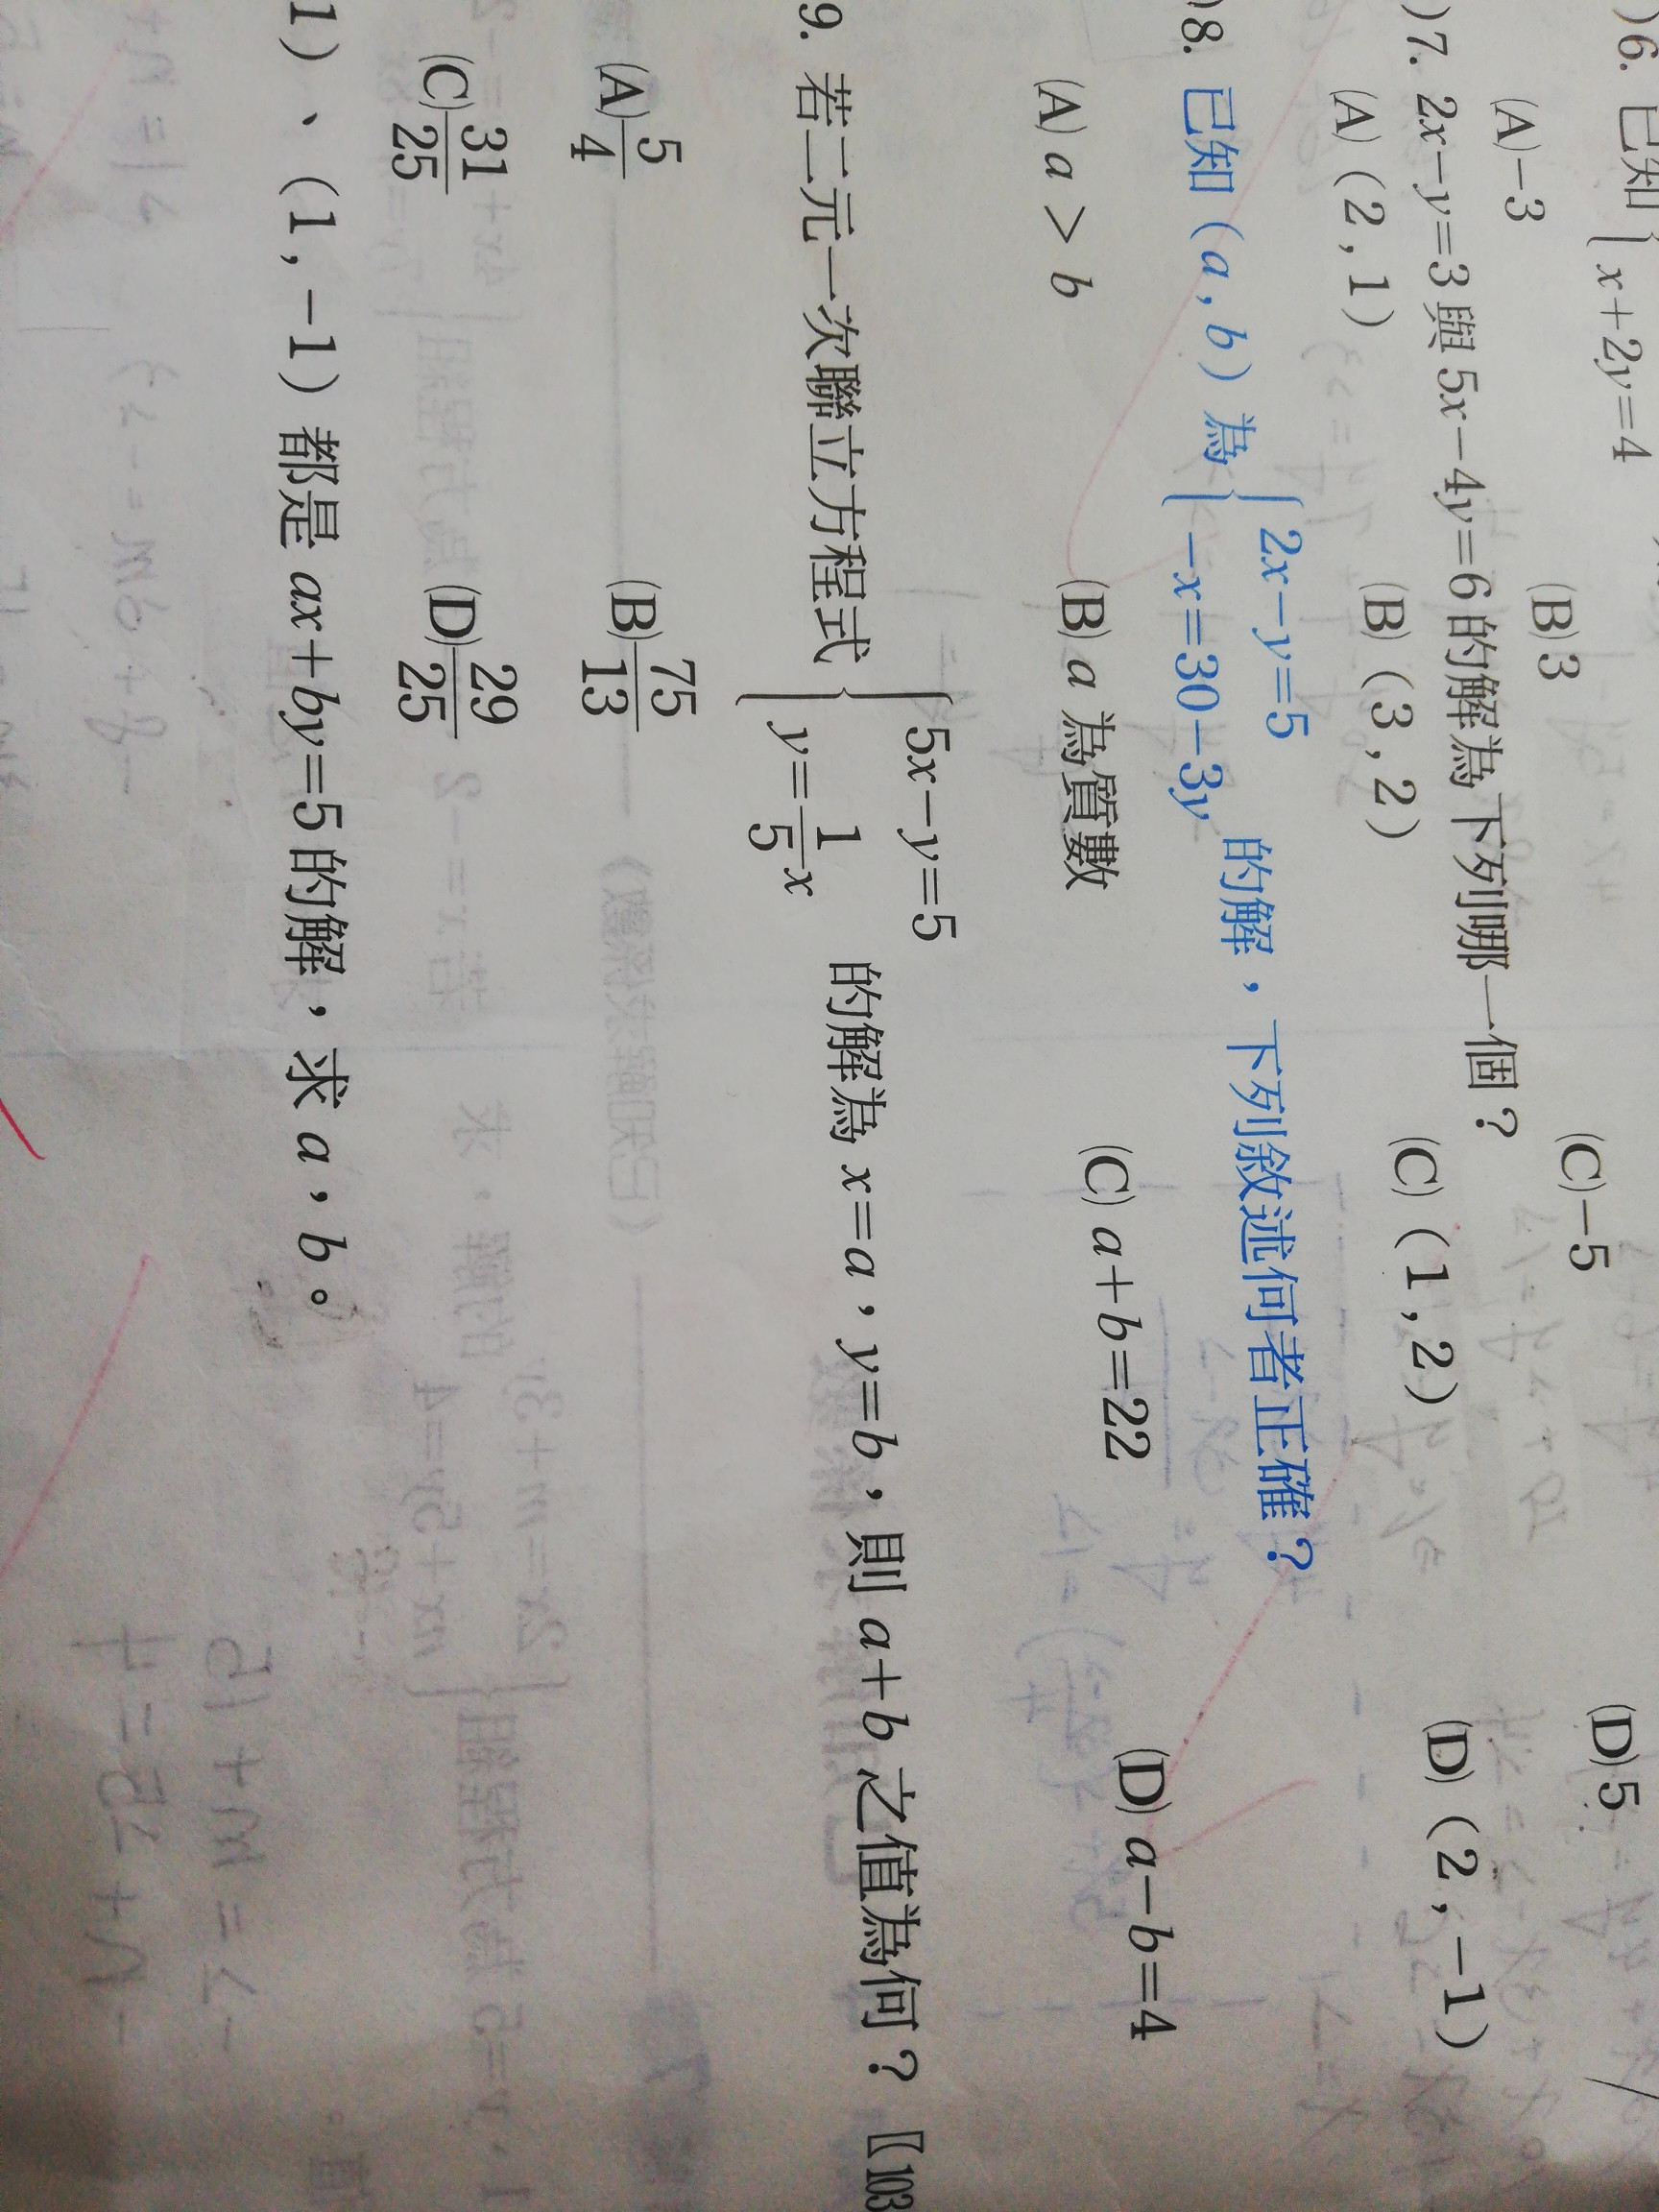 )6. 已知{x+2y=4
(A)−3 (B)3 (C)−5 (D)5
)7. 2x−y=3與5x−4y=6的解為下列哪一個？
(A)(2,1) (B)(3,2) (C)(1,2) (D)(2,−1)
)8. 已知(a,b)為{2x−y=5
−x=30−3y 的解，下列敘述何者正確？
(A) a > b (B) a 為質數 (C) a+b=22 (D) a−b=4
9. 若二元一次聯立方程式{5x−y=5
y=1/5x 的解為 x=a，y=b，則 a+b 之值為何？〖103
(A)5/4 (B)75/13
(C)31/25 (D)29/25
1)、(1,−1)都是 ax+by=5的解，求 a，b。